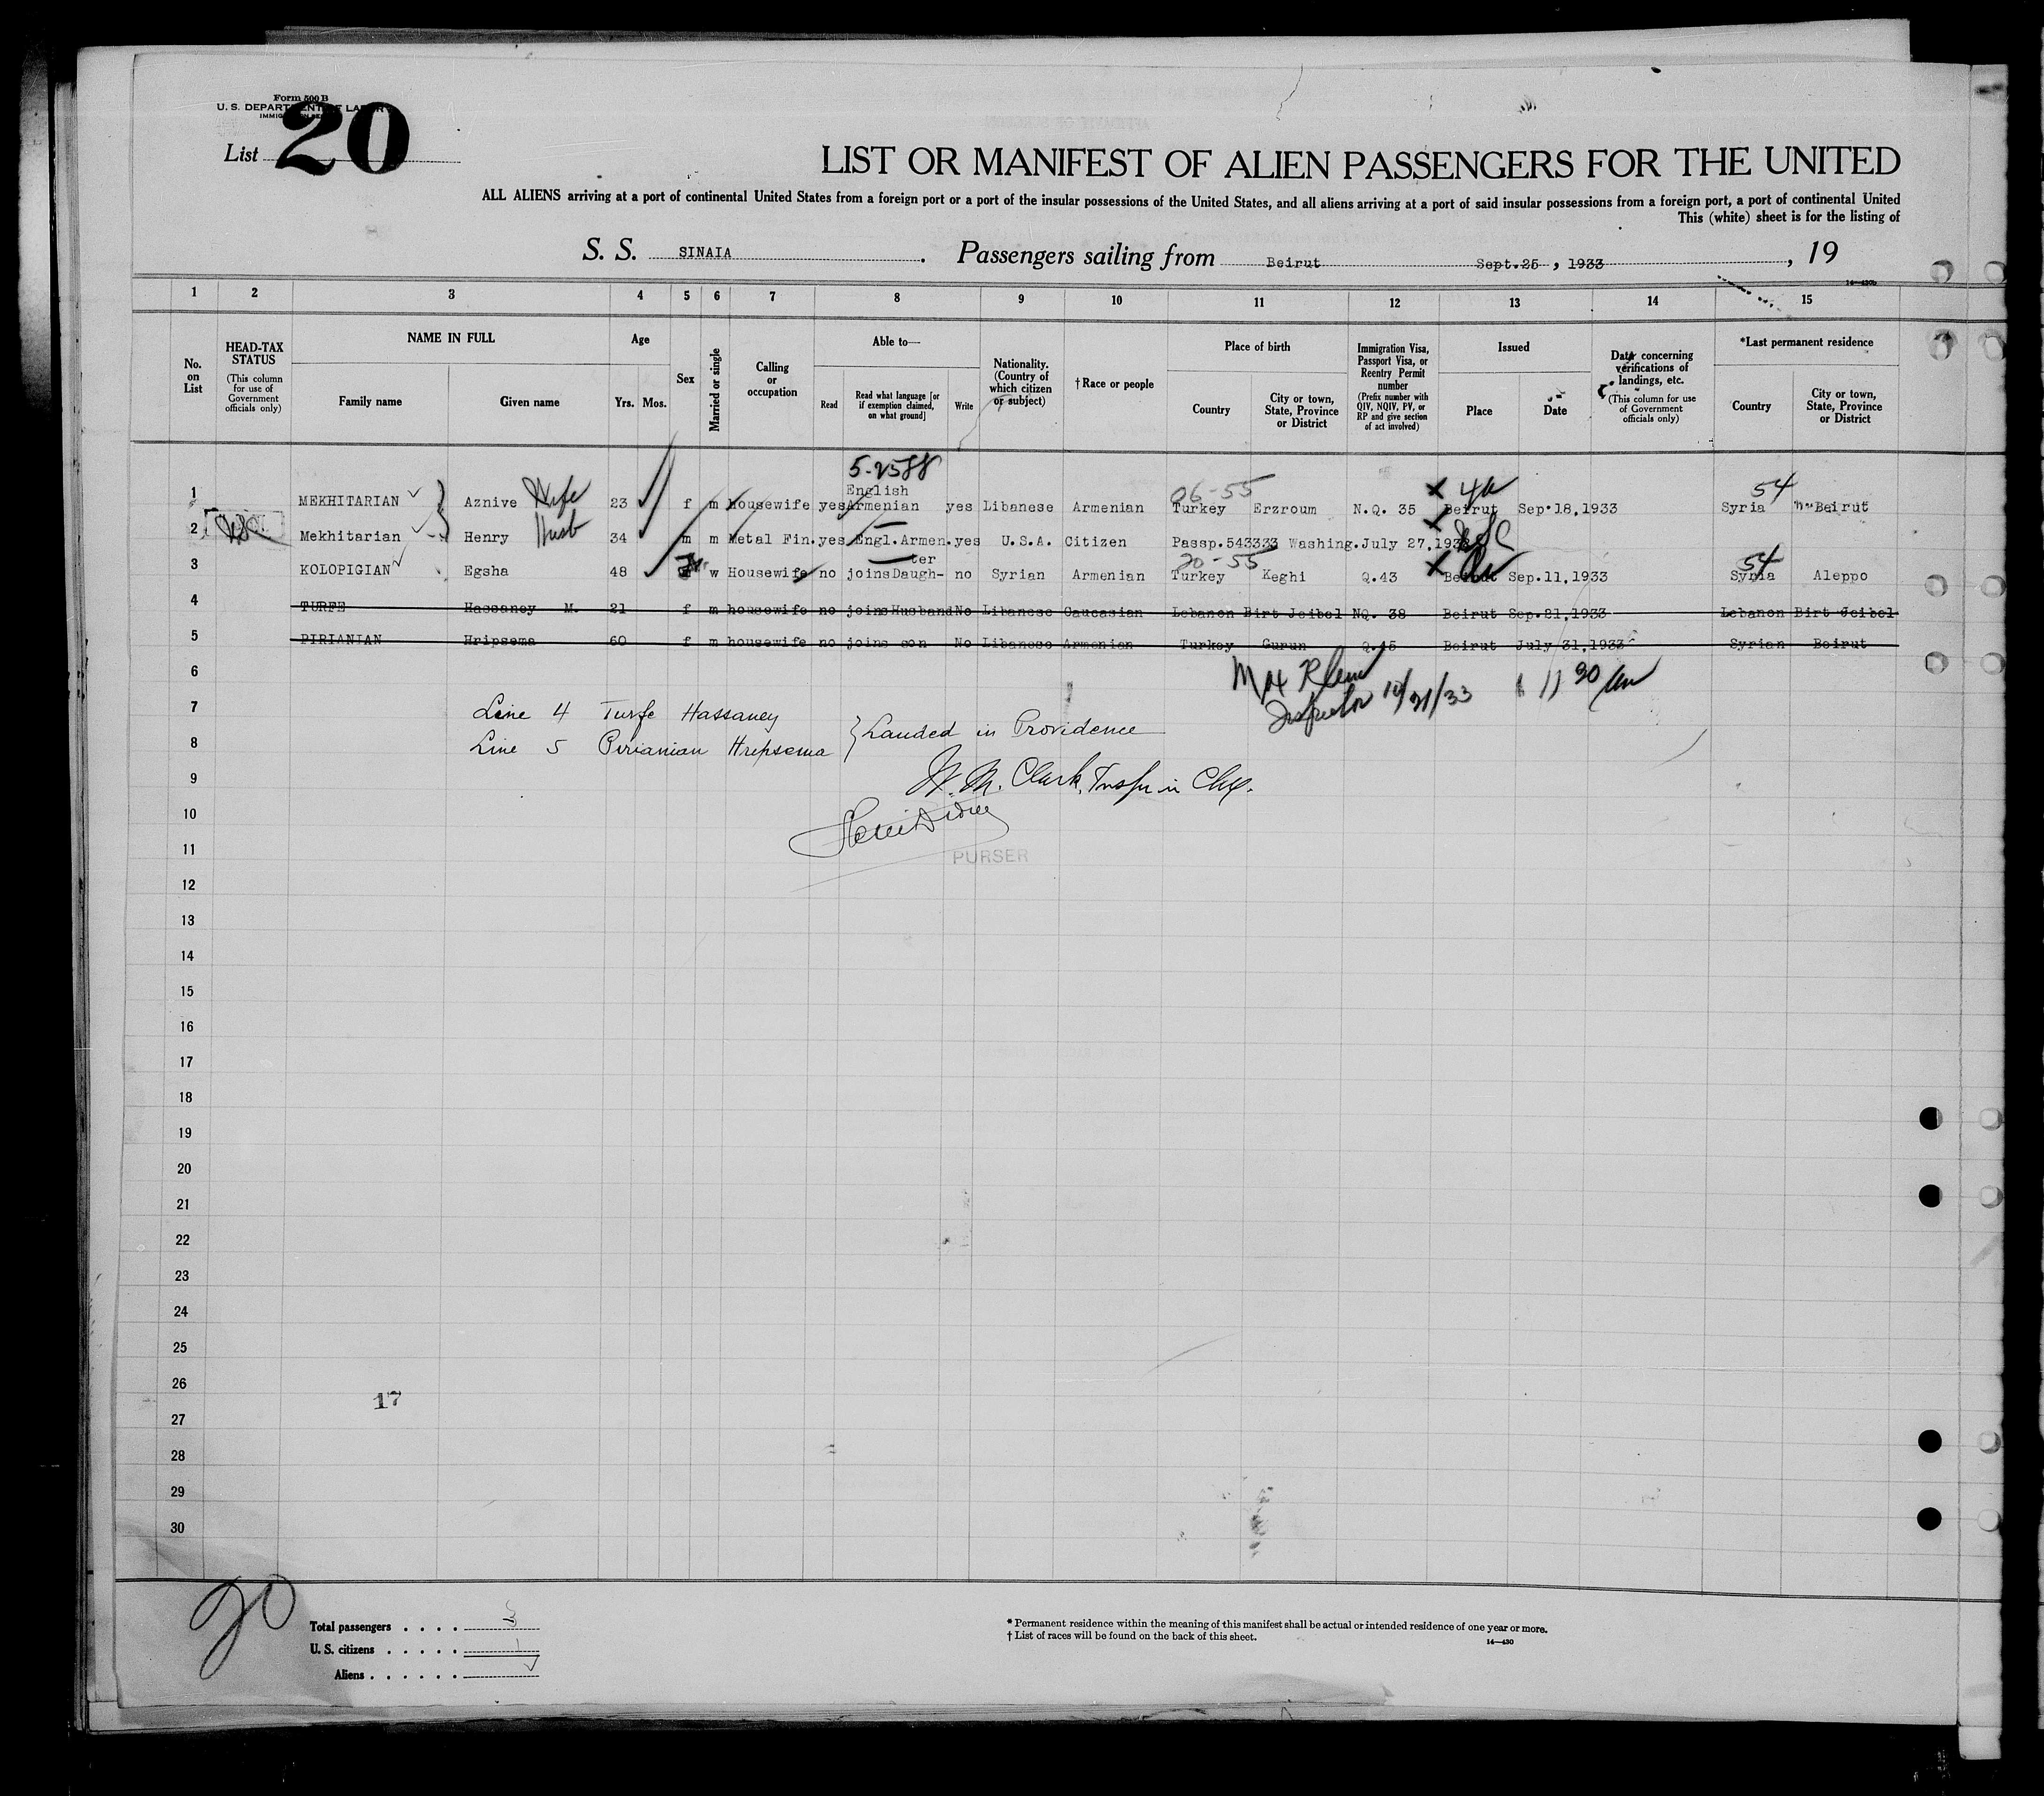 Form 500 B
U. S. DEPARTMENT OF LABOR
List 20
LIST OR MANIFEST OF ALIEN PASSENGERS FOR THE UNITED
ALL ALIENS arriving at a port of continental United States from a foreign port or a port of the insular possessions of the United States, and all aliens arriving at a port of said insular possessions from a foreign port, a port of continental United
This (white) sheet is for the listing of
S. S. SINAIA. Passengers sailing from Beirut Sept.25, 1933, 19
14—430b
1 2 3 4 5 6 7 8 9 10 11 12 13 14 15
No. on List
HEAD-TAX STATUS (This column for use of Government officials only)
NAME IN FULL
Family name
Given name
Age
Yrs. Mos.
Sex
Married or single
Calling or occupation
Able to—
Read
Read what language [or if exemption claimed, on what ground]
Write
Nationality. (Country of which citizen or subject)
† Race or people
Place of birth
Country
City or town, State, Province or District
Immigration Visa, Passport Visa, or Reentry Permit number (Prefix number with QIV, NQIV, PV, or RP and give section of act involved)
Issued
Place
Date
Data concerning verifications of landings, etc. (This column for use of Government officials only)
*Last permanent residence
Country
City or town, State, Province or District
5-2588
English
06-55 4a 54
1 MEKHITARIAN Aznive Wife 23 f m housewife yes Armenian yes Libanese Armenian Turkey Erzroum N.Q. 35 Beirut Sep.18,1933 Syria Beirut
2 Mekhitarian Henry Husb 34 m m Metal Fin. yes Engl.Armen. yes U.S.A. Citizen Passp.543333 Washing. July 27,1933 USC
ter
20-55 54
3 KOLOPIGIAN Egsha 48 w Housewife no joins Daugh- no Syrian Armenian Turkey Keghi Q.43 Beirut Sep.11,1933 Syria Aleppo
4 TURFE Hassaney M. 21 f m housewife no joins Husband No Libanese Caucasian Lebanon Birt Jeibel NQ. 38 Beirut Sep.21,1933 Lebanon Birt Jeibel
5 PIRIANIAN Hripsema 60 f m housewife no joins son No Libanese Armenian Turkey Gurun Q.15 Beirut July 31,1933 Syrian Beirut
6
Inspector 10/21/33 11 30 am
7 Line 4 Turfe Hassaney
8 Line 5 Pirianian Hrepsema } Landed in Providence
9 W. M. Clark, Inspr in Chg.
10
11 PURSER
12
13
14
15
16
17
18
19
20
21
22
23
24
25
26
17
27
28
29
30
20
Total passengers . . . . 3
U. S. citizens . . . . . 1
Aliens . . . . . .
* Permanent residence within the meaning of this manifest shall be actual or intended residence of one year or more.
† List of races will be found on the back of this sheet.
14—430